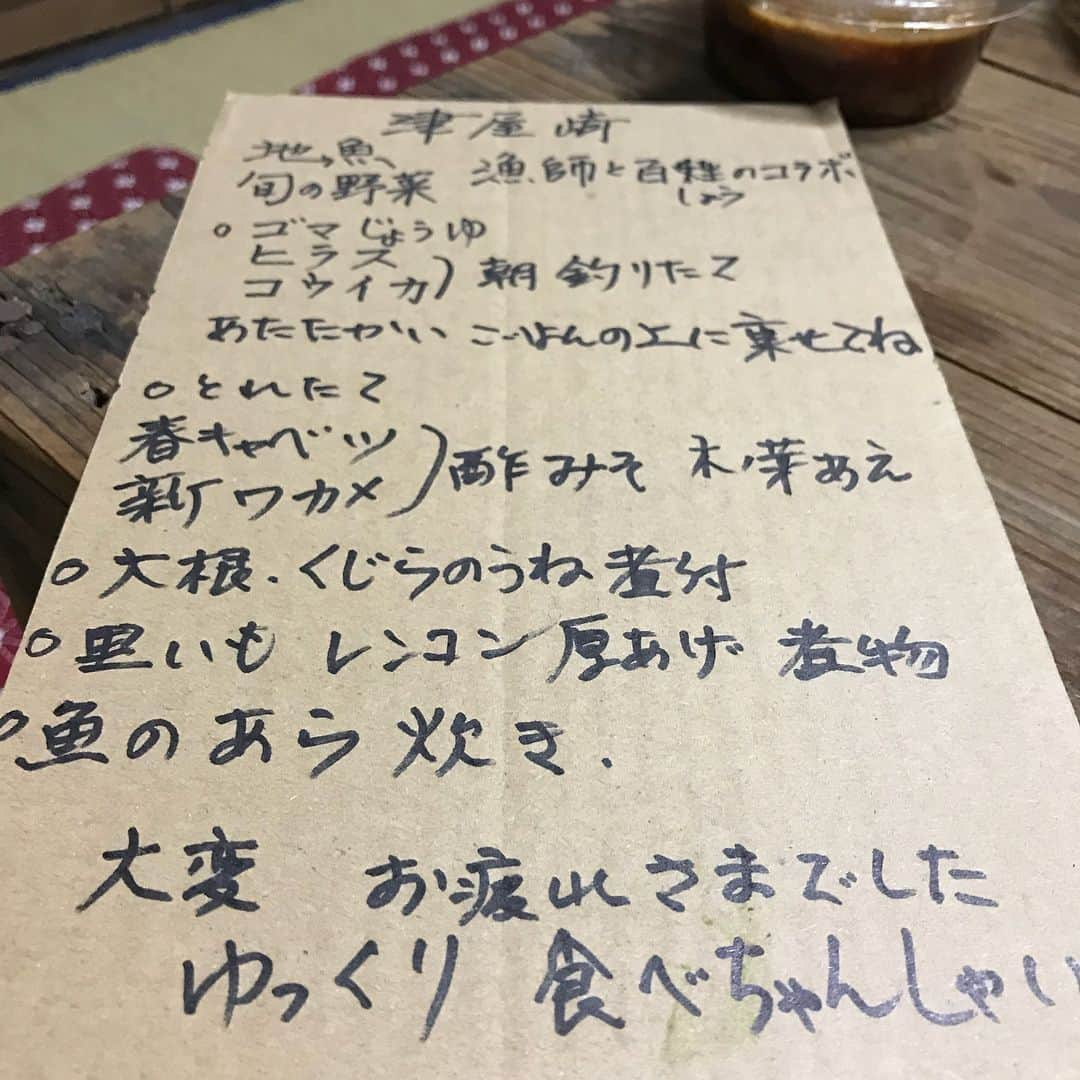 津屋崎
地魚
旬の野菜 漁師と百姓のコラボ
しょう
○ ゴマじょうゆ
ヒラス
コウイカ) 朝釣りたて
あたたかい ごはんの上に乗せてね
○とれたて
春キャベツ
新ワカメ)酢みそ 木ノ芽あえ
○大根.くじらのうね煮付
○里いも レンコン 厚あげ 煮物
○魚のあら炊き.
大変 お疲れさまでした
ゆっくり 食べちゃんしゃい